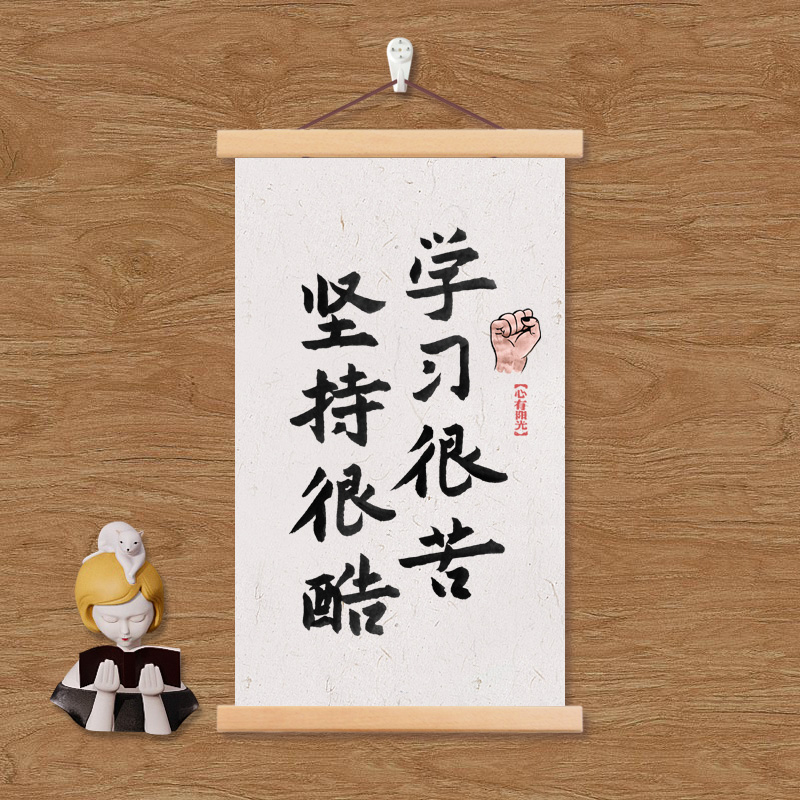 学习很苦
坚持很酷
【心有阳光】